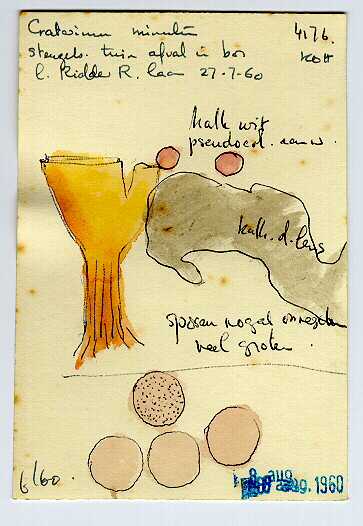 Craterium minutum 4176.
stengels. tuin afval in bos
l. Ridder R. laan 27-7-60
kalk wit
pseudocol. aanw.
kalk. d. lens
sporen nogal onregelm
veel groter.
6/60.
aug. 1960